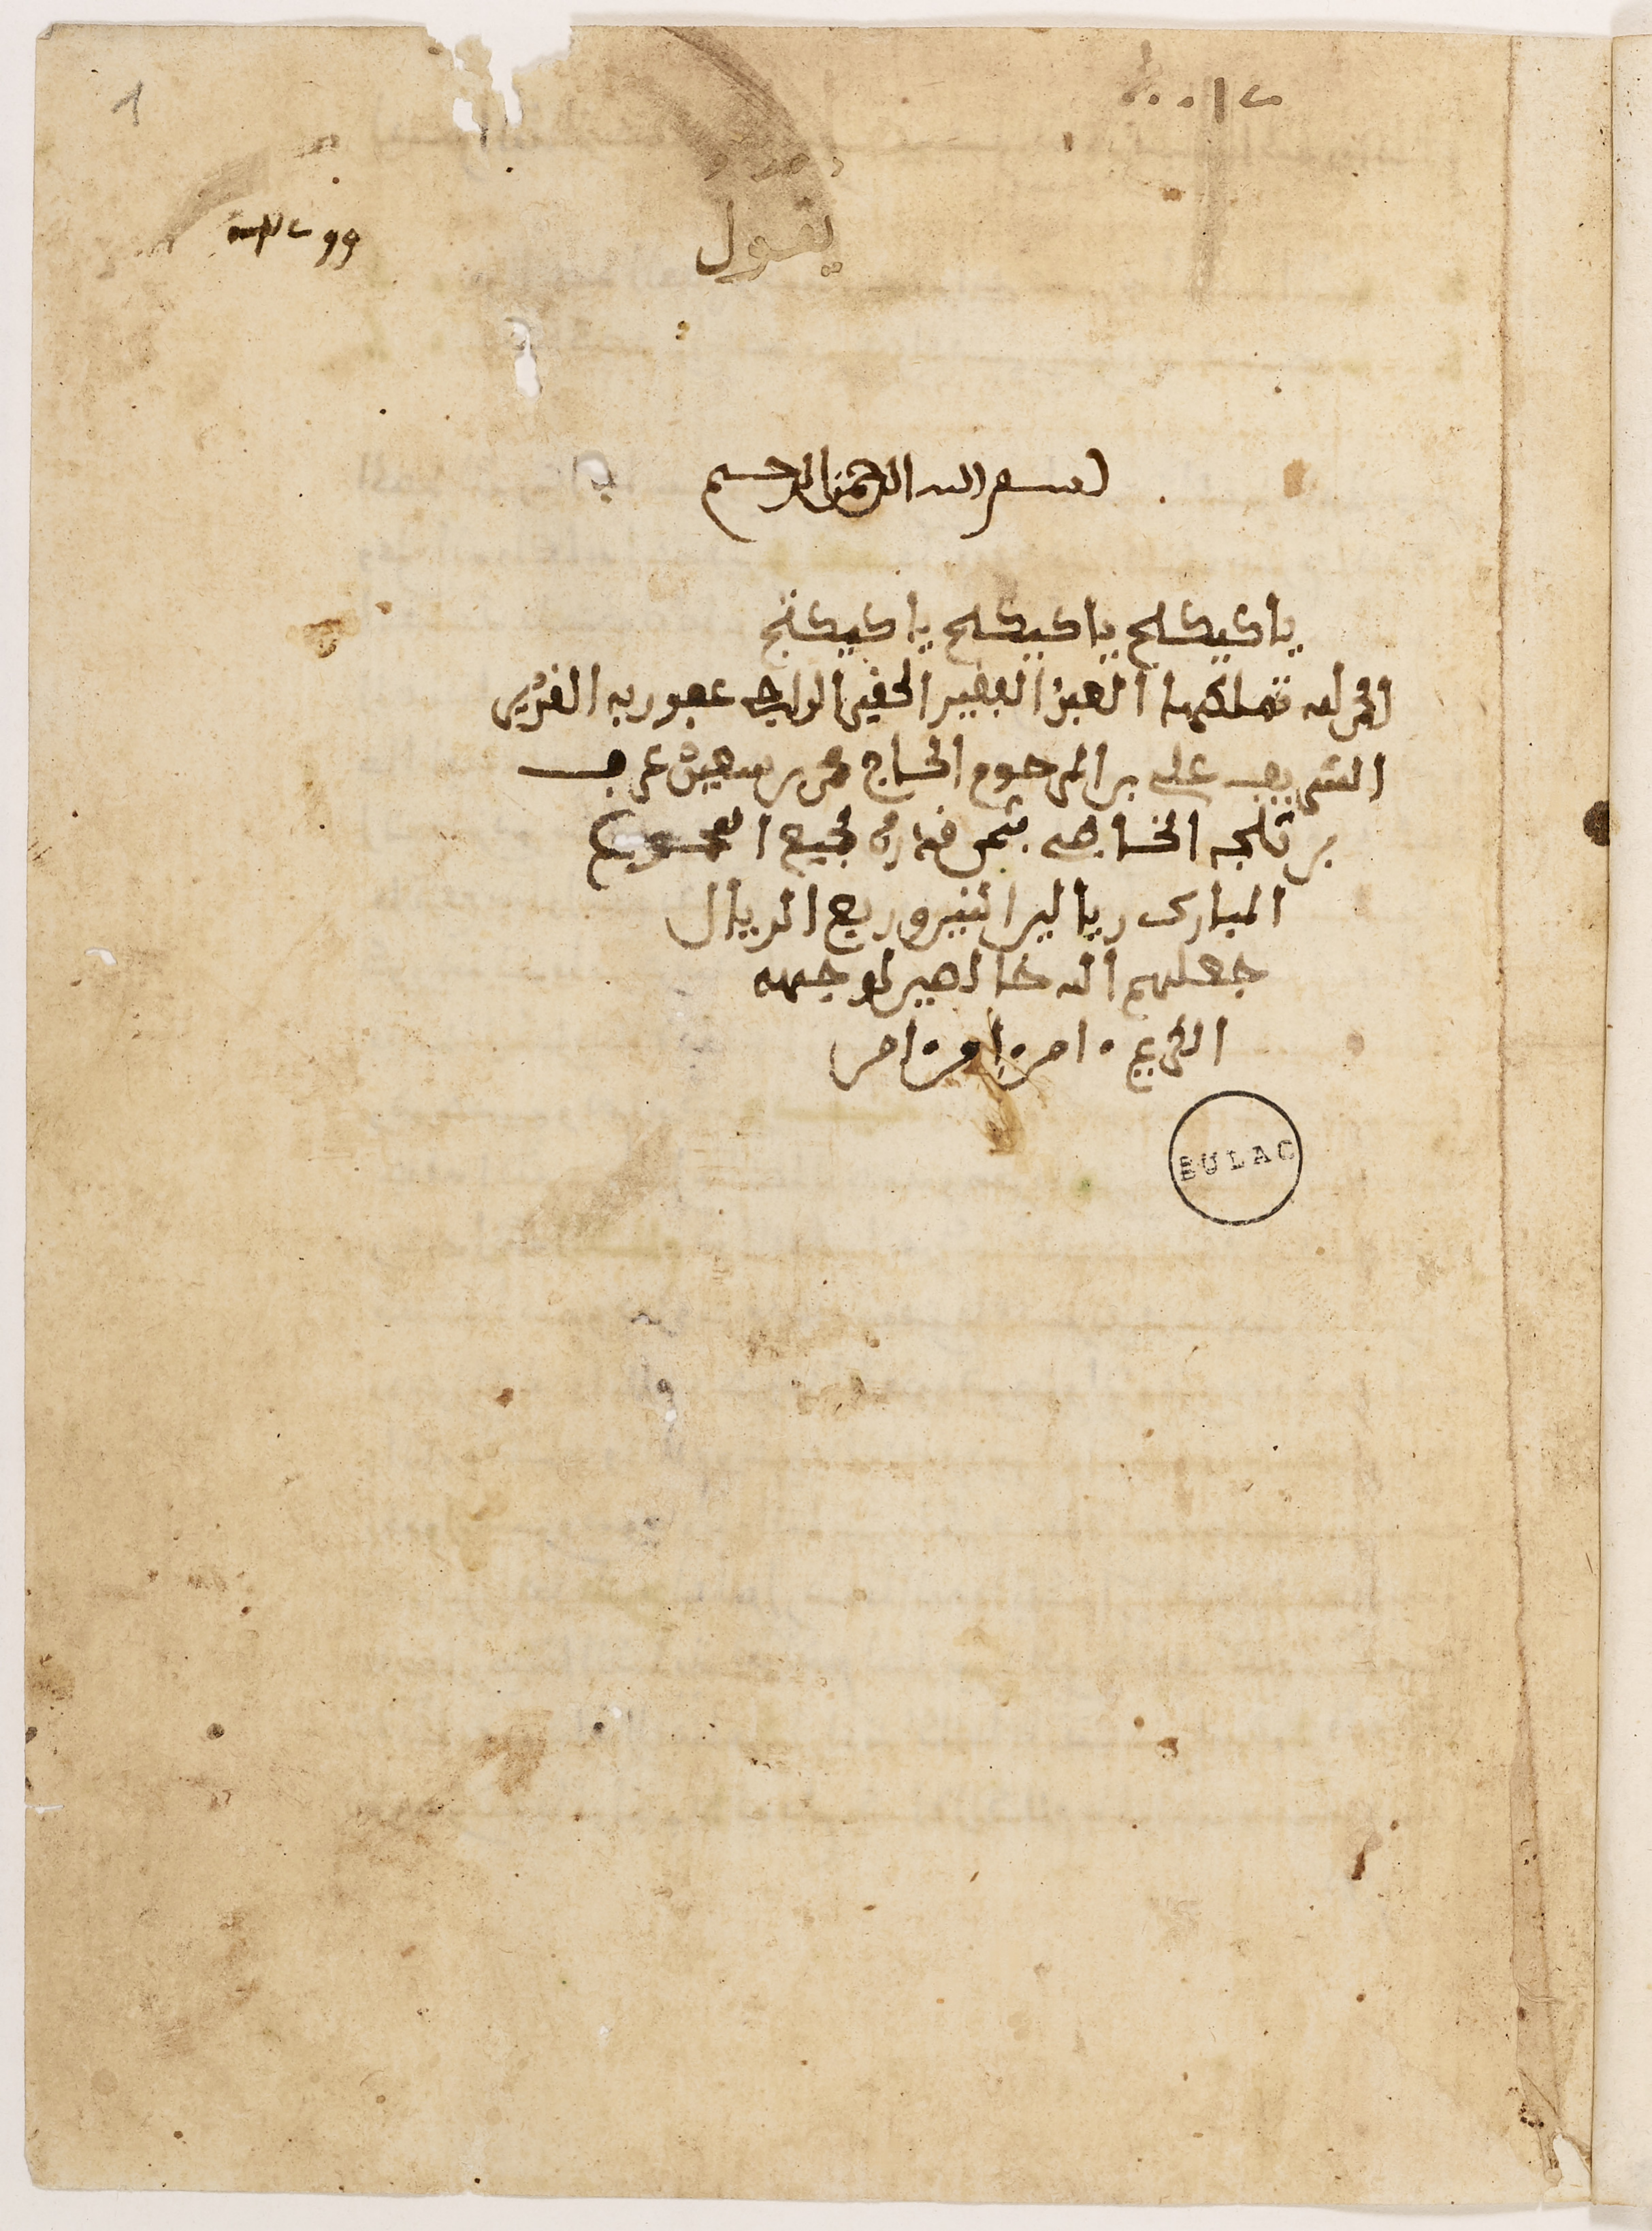 1
يقول
بسم الله الرحمن الرحيم
يا كيكج يا كيكج يا كيكج
الحمد لله تملكه العبد الفقير الحقير الراجي عفو ربه القدير
الشريف علي بن المرحوم الحاج محمد بن سعيد عرف
بن قلجه الخاصي بثمن قدره لجميع
المبارك ريالين اثنين وربع الريال
جعلهم الله خالصين لوجهه
الكريم امين امين امين
BULAC